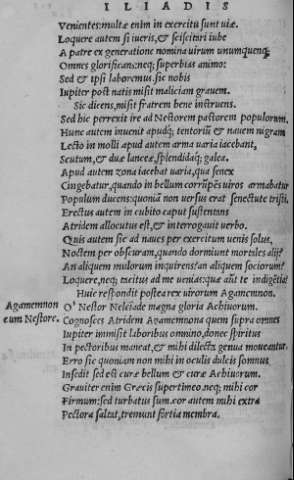 ILIADIS
Venientes: multæ enim in exercitu sunt uiæ.
Loquere autem si iueris, & sciscitari iube
A patre ex generatione nomina uirum unumquenq;
Omnes glorificans: neq; superbias animo:
Sed & ipsi laboremus sic nobis
Iupiter post natis misit maliciam grauem.
Sic dicens, misit fratrem bene instruens.
Sed hic perrexit ire ad Nestorem pastorem populorum,
Hunc autem inuenit apudq; tentoriū & nauem nigram
Lecto in molli apud autem arma uaria iacebant,
Scutum, & duæ lanceæ, splendidaq; galea.
Apud autem zona iacebat uaria, qua senex
Cingebatur, quando in bellum corrūpēs uiros armabatur
Populum ducens: quoniā non uersus erat senectute tristi,
Erectus autem in cubito caput sustentans
Atridem allocutus est, & interrogauit uerbo.
Quis autem sic ad naues per exercitum uenis solus,
Noctem per obscuram, quando dormiunt mortales alij?
An aliquem mulorum inquirens? an aliquem sociorum?
Loquere, neq; tacitus ad me uenias: quæ aūt te indigētia?
Huic respondit postea rex uirorum Agamemnon.
Agamemnon cum Nestore.
O' Nestor Neleiade magna gloria Achiuorum.
Cognosces Atridem Agamemnona quem supra omnes
Iupiter immisit laboribus omnino, donec spiritus
In pectoribus maneat, & mihi dilecta genua moueantur.
Erro sic quoniam non mihi in oculis dulcis somnus
Insedit sed est curæ bellum & curæ Achiuorum.
Grauiter enim Græcis supertimeo, neq; mihi cor
Firmum: sed turbatus sum. cor autem mihi extra
Pectora saltat, tremunt fortia membra.